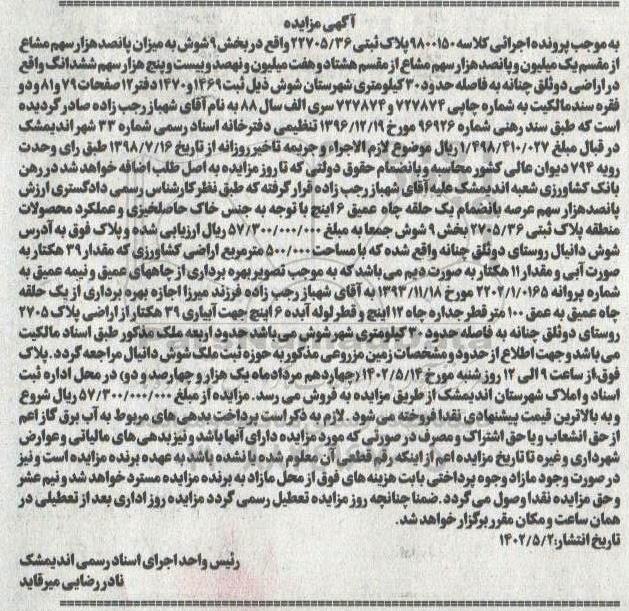 آگهی مزایده
به موجب پرونده اجرائی کلاسه ۹۸۰۰۱۵۰ پلاک ثبتی ۲۲۷۰۵/۳۶ واقع در بخش ۹ شوش به میزان پانصد هزار سهم مشاع
از مقسم یک میلیون و پانصد هزار سهم مشاع از مقسم هشتاد و هفت میلیون و نهصد و بیست و پنج هزار سهم ششدانگ واقع
در اراضی دوثلق چنانه به فاصله حدود ۳۰ کیلومتری شهرستان شوش ذیل ثبت ۱۴۶۹ و ۱۴۷۰ دفتر ۱۲ صفحات ۷۹ و ۸۱ و دو
فقره سند مالکیت به شماره چاپی ۷۲۷۸۷۴ و ۷۲۷۸۷۳ سری الف سال ۸۸ به نام آقای شهباز رجب زاده صادر گردیده
است که طبق سند رهنی شماره ۹۶۹۲۶ مورخ ۱۳۹۶/۱۲/۱۹ تنظیمی دفترخانه اسناد رسمی شماره ۳۳ شهر اندیمشک
در قبال مبلغ ۱/۴۹۸/۴۱۰/۰۲۷ ریال موضوع لازم الاجراء و جریمه تاخیر روزانه از تاریخ ۱۳۹۸/۷/۱۶ طبق رای وحدت
رویه ۷۹۴ دیوان عالی کشور محاسبه و بانضمام حقوق دولتی که تا روز مزایده به اصل طلب اضافه خواهد شد در رهن
بانک کشاورزی شعبه اندیمشک علیه آقای شهباز رجب زاده قرار گرفته که طبق نظر کارشناس رسمی دادگستری ارزش
پانصد هزار سهم عرصه بانضمام یک حلقه چاه عمیق ۶ اینچ با توجه به جنس خاک حاصلخیزی و عملکرد محصولات
منطقه پلاک ثبتی ۲۷۰۵/۳۶ بخش ۹ شوش جمعا به مبلغ ۵۷/۳۰۰/۰۰۰/۰۰۰ ریال ارزیابی شده و پلاک فوق به آدرس
شوش دانیال روستای دوثلق چنانه واقع شده که با مساحت ۵۰۰/۰۰۰ مترمربع اراضی کشاورزی که مقدار ۳۹ هکتار به
صورت آبی و مقدار ۱۱ هکتار به صورت دیم می باشد که به موجب تصویر بهره برداری از چاههای عمیق و نیمه عمیق به
شماره پروانه ۲۲۰۲/۱/۰۱۶۵ مورخ ۱۳۹۳/۱۱/۱۸ به آقای شهباز رجب زاده فرزند میرزا اجازه بهره برداری از یک حلقه
چاه عمیق به عمق ۱۰۰ متر قطر جداره چاه ۱۲ اینچ و قطر لوله آبده ۶ اینچ جهت آبیاری ۳۹ هکتار از اراضی پلاک ۲۷۰۵
روستای دوثلق چنانه به فاصله حدود ۳۰ کیلومتری شهر شوش می باشد حدود اربعه ملک مذکور طبق اسناد مالکیت
می باشد و جهت اطلاع از حدود و مشخصات زمین مزروعی مذکور به حوزه ثبت ملک شوش دانیال مراجعه گردد. پلاک
فوق، از ساعت ۹ الی ۱۲ روز شنبه مورخ ۱۴۰۲/۵/۱۴ (چهاردهم مردادماه یک هزار و چهارصد و دو) در محل اداره ثبت
اسناد و املاک شهرستان اندیمشک از طریق مزایده به فروش می رسد. مزایده از مبلغ ۵۷/۳۰۰/۰۰۰/۰۰۰ ریال شروع
و به بالاترین قیمت پیشنهادی نقدا فروخته می شود. لازم به ذکر است پرداخت بدهی های مربوط به آب برق گاز اعم
از حق انشعاب و یا حق اشتراک و مصرف در صورتی که مورد مزایده دارای آنها باشد و نیز بدهی های مالیاتی و عوارض
شهرداری و غیره تا تاریخ مزایده اعم از اینکه رقم قطعی آن معلوم شده یا نشده باشد به عهده برنده مزایده است و نیز
در صورت وجود مازاد وجوه پرداختی بابت هزینه های فوق از محل مازاد به برنده مزایده مسترد خواهد شد و نیم عشر
و حق مزایده نقدا وصول می گردد. ضمنا چنانچه روز مزایده تعطیل رسمی گردد مزایده روز اداری بعد از تعطیلی در
همان ساعت و مکان مقرر برگزار خواهد شد.
تاریخ انتشار: ۱۴۰۲/۵/۲
رئیس واحد اجرای اسناد رسمی اندیمشک
نادر رضایی میرقاید